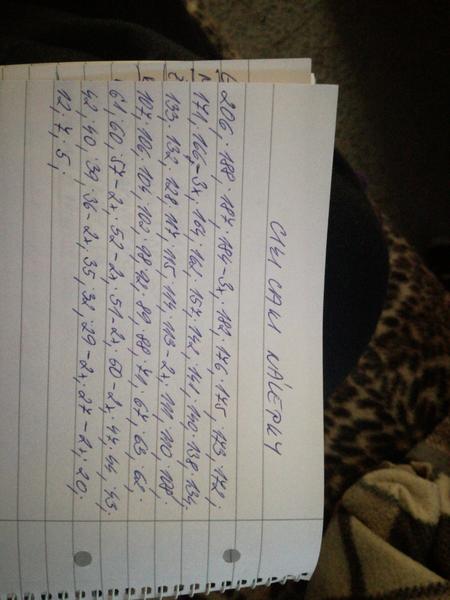 CHI CAKI NÁLEPKY
206, 188, 187, 184-3x, 182, 176, 175, 173, 172,
171, 166-3x, 164, 162, 157, 142, 141, 140, 138, 134,
133, 132, 128, 117, 115, 114, 113-2x, 111, 110, 108,
107, 106, 104, 102, 98, 92, 89, 88, 71, 67, 63, 62,
61, 60, 57-2x, 52-2x, 51-2x, 50-2x, 47, 44, 43,
42, 40, 39, 36-2x, 35, 32, 29-2x, 27-2x, 20,
12, 7, 5,